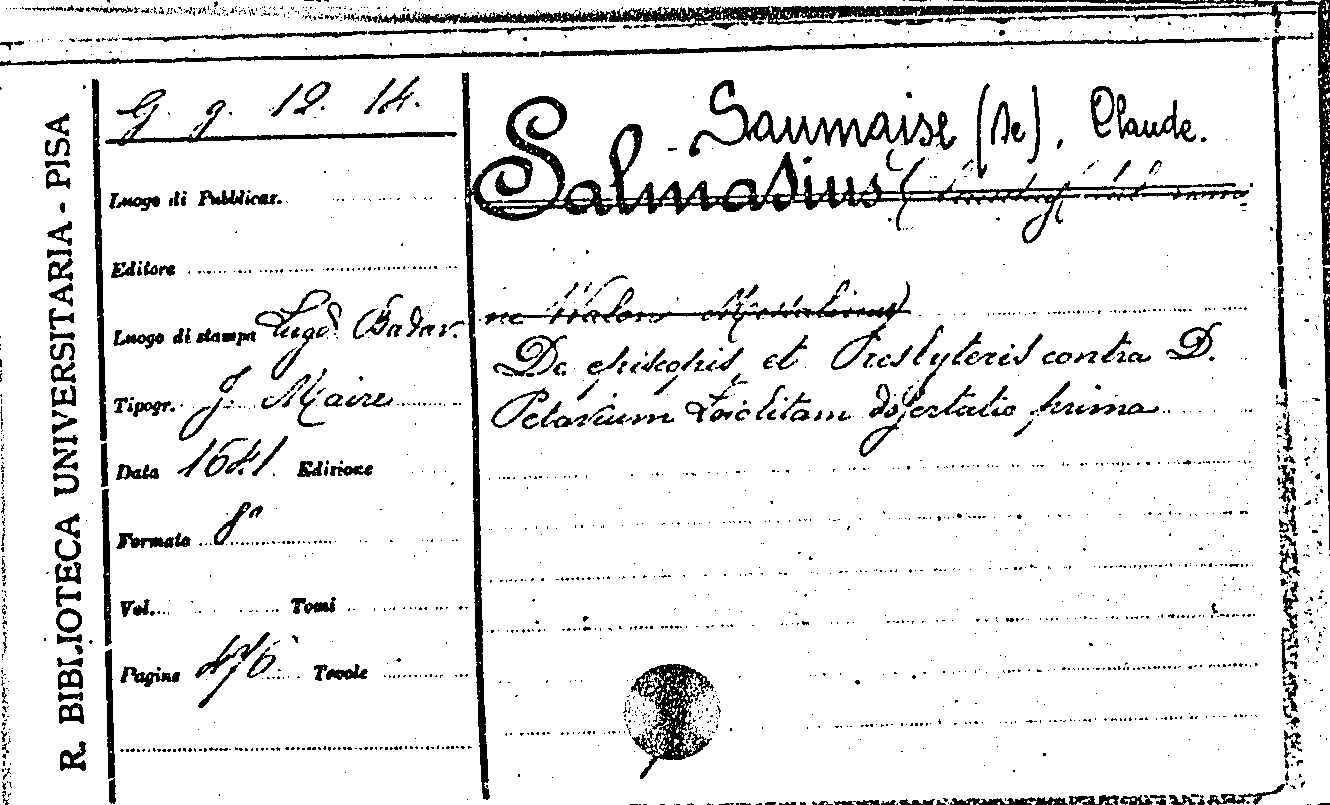 R. BIBLIOTECA UNIVERSITARIA - PISA
G. g. 12. 14.
Luogo di Pubblicaz.
Editore
Luogo di stampa Lugd. Badav.
Tipogr. J. Maire
Data 1641 Edizione
Formato 8°
Vol. Tomi
Pagine 476 Tavole
Saumaise (De), Claude.
Salmasius (
ne Walone Messalinus)
De episcopis et Presbyteris contra D.
Petavium Loiolitam dissertatio prima